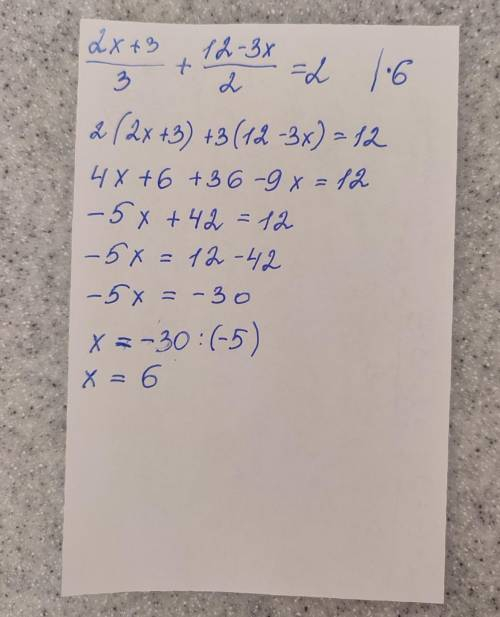 (2x+3)/3 + (12-3x)/2 = 2 |·6
2(2x+3)+3(12-3x)=12
4x+6+36-9x=12
-5x+42=12
-5x=12-42
-5x=-30
x=-30:(-5)
x=6